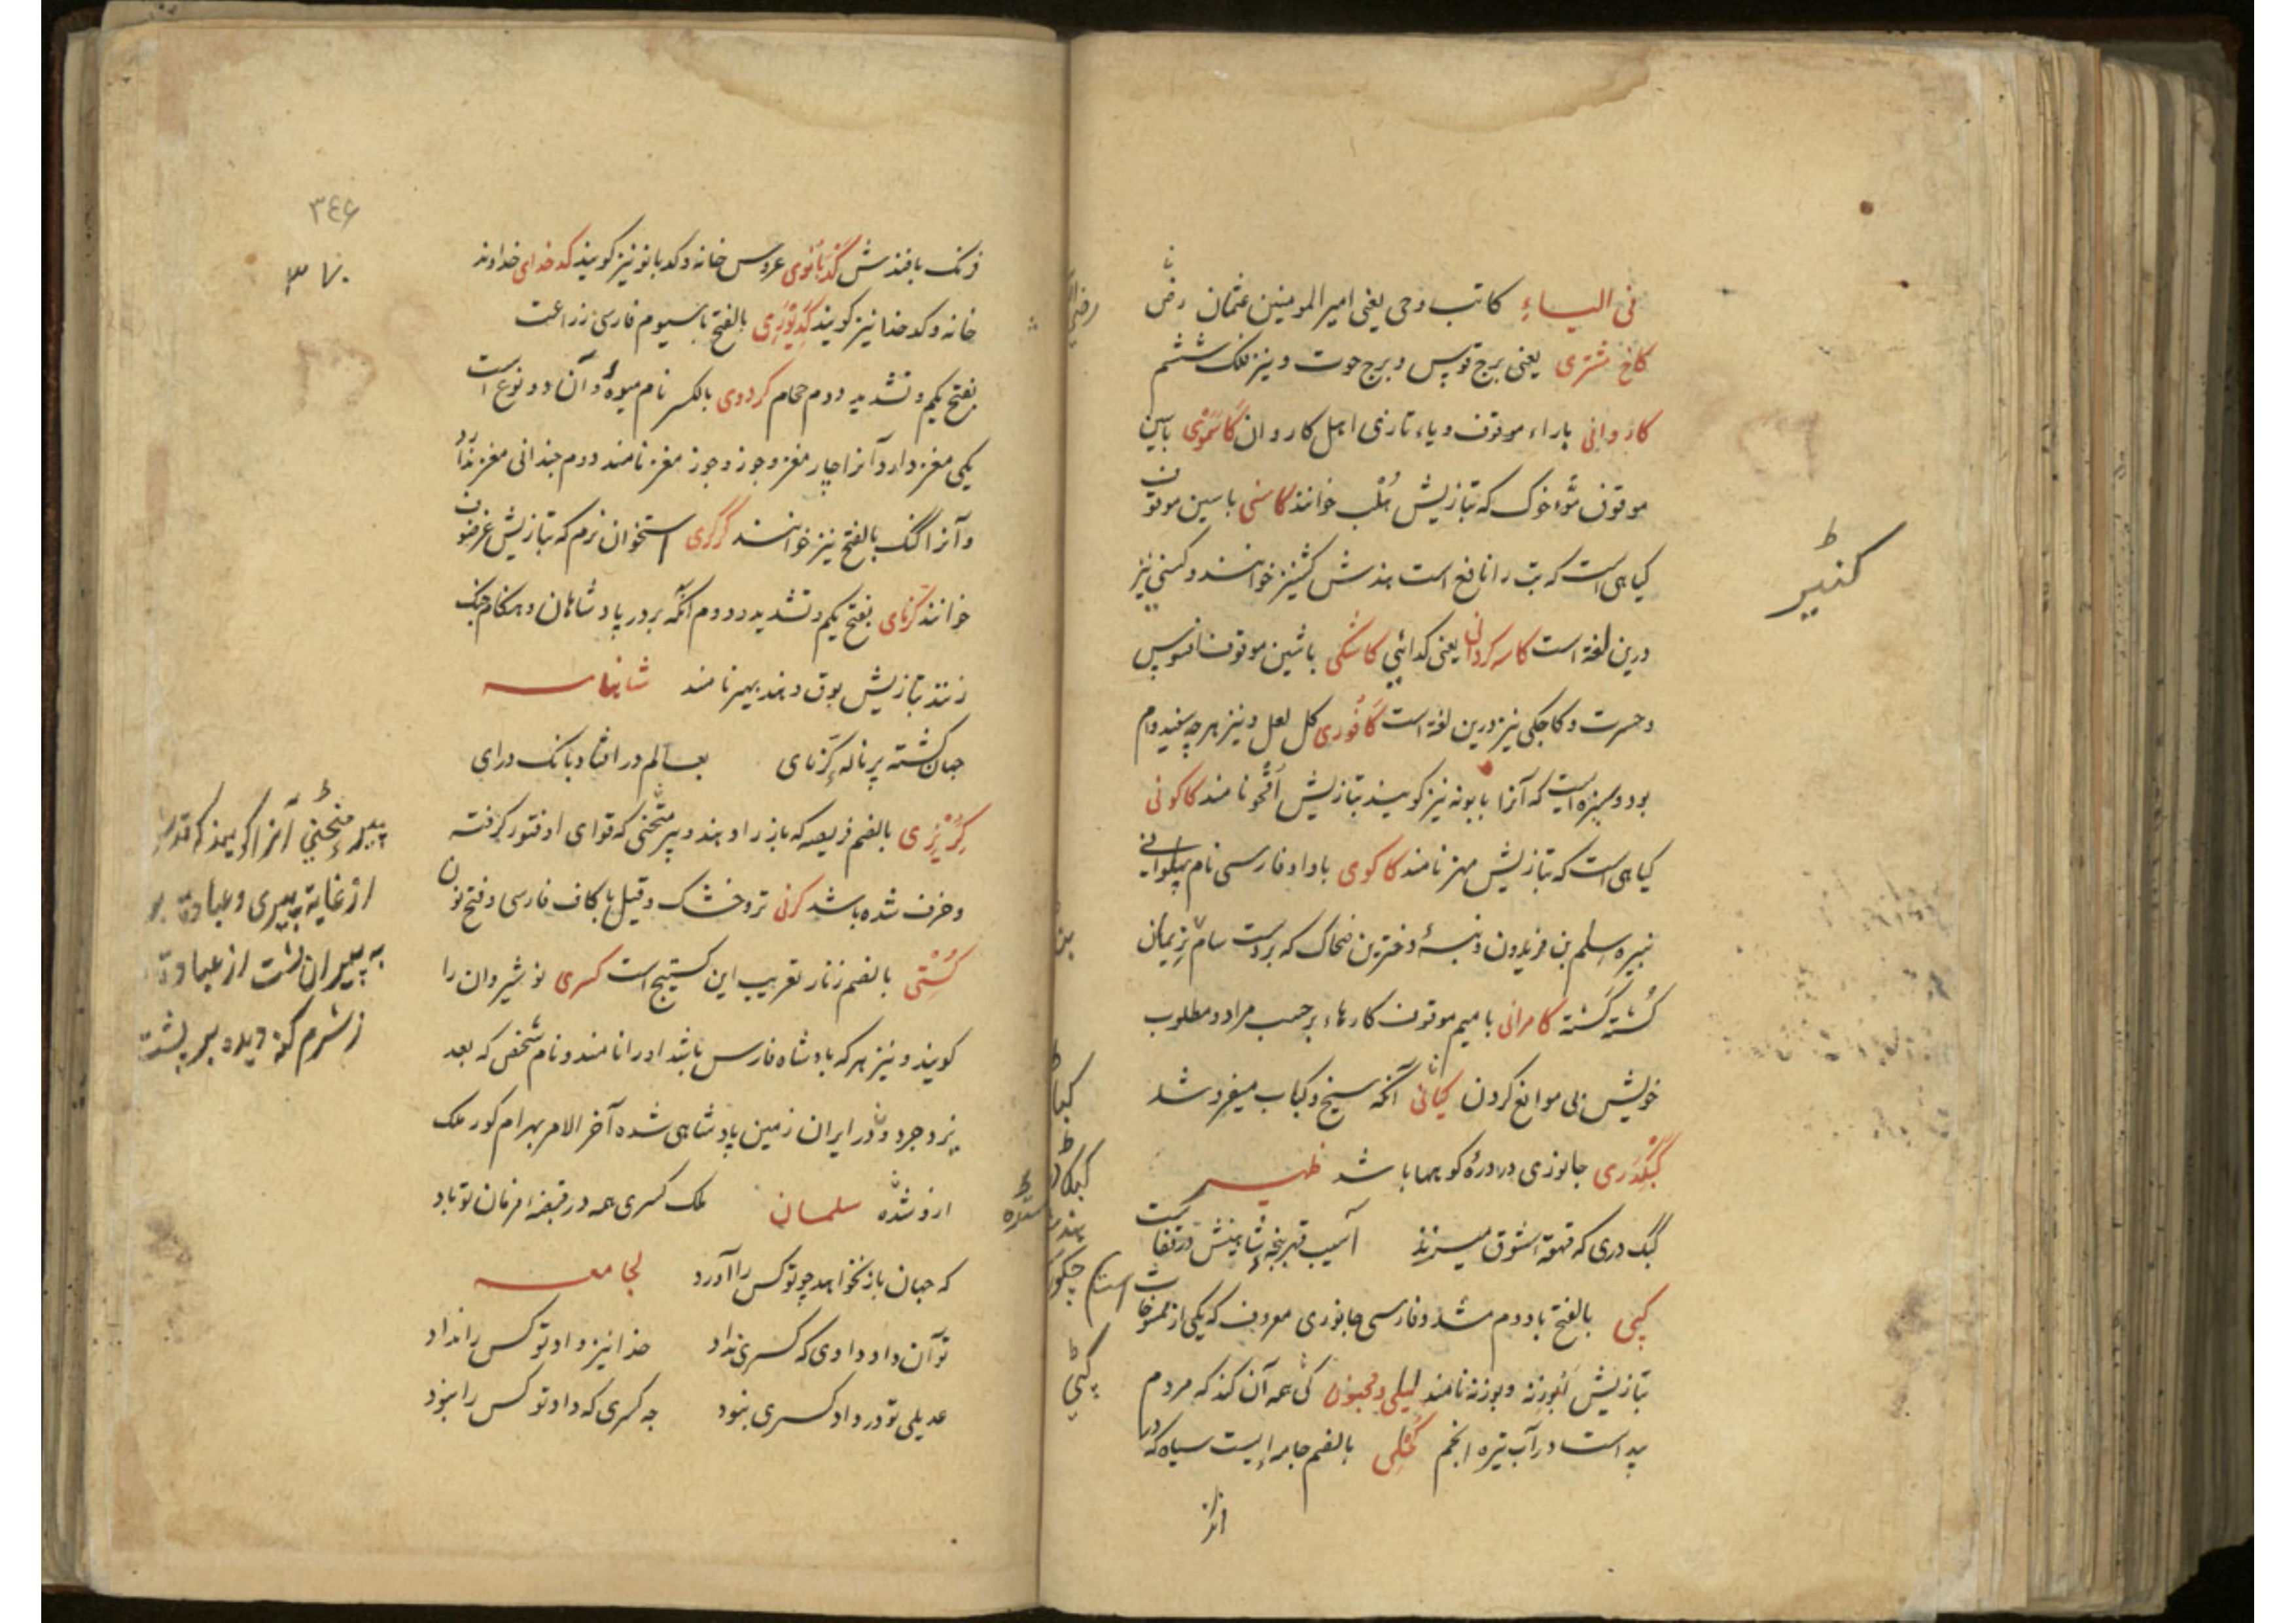 فی الیاء کاتب وحی یعنی امیر المومنین عثمان رض
کاخ مشتری یعنی برج قوس و برج حوت و نیز فلک ششم
کاروانی باراء موقوف و یاء تازی اهل کاروان کاسموی باسین
موقوف مؤ خوک که بتازیش هلب خوانند کاسنی باسین موقوف
کیاهی است که تب را نافع است بندش کشنیز خوانند و کسنی نیز
درین لغة است کاسه کردان یعنی کدائی کاشکی باشین موقوف افسوس
و حسرت و کاجکی نیز درین لغة است کافوری کل لعل و نیز هرچه سفید دام
بود و سبزه ایست که آنرا بابونه نیز کویند بتازیش اقحو نامند کاکونی
کیاهی است که بتازیش مهز نامند کاکوی باواو فارسی نام پهلوانی
نبیره سلم بن فریدون و نبسهٔ دخترین ضحاک که بر دست سام نریمان
کشته کشته کامرانی بامیم موقوف کارهاء بر حسب مراد و مطلوب
خویش بی موانع کردن کبابی آنکه سیخ و کباب میفروشد
کبکدری جانوری در درهٔ کوهها باشد ظهیر
کبک دری که قهقهه شوق میزند آسیب قهر پنجه شاهینش در قفاست
کپی بالفتح با دوم مشدد فارسی جانوری معروف که یکی از ممسوخات است
بتازیش ابوزنه و بوزنه نامند لیلی و مجنون کپی همه آن کند که مردم
پیداست در آب تیره انجم کحلی بالضم جامه ایست سیاه که در
کنیر
رض
بن
کپی
زنک بافندش کدبانوی عروس خانه و کدبانو نیز کویند کدخدای خداوند
خانه و کدخدا نیز کویند کدیوری بالفتح باسیوم فارسی زراعت
بفتح یکم و تشدید دوم حجام کردوی بالکسر نام میوهٔ و آن دو نوع است
یکی مغز دارد آنرا چار مغز و جوز و جوز مغز نامند دوم چندانی مغز ندارد
و آنرا کنک بالفتح نیز خوانند کرکری استخوان نرم که بتازیش غرضوف
خوانند کرنای بفتح یکم و تشدید دوم آنکه بر در پادشاهان و هنکام جنک
زنند بتازیش بوق و هند بهیر نامند شاهنامه
جهان کشته پر ناله کرنای بعالم در افتاد بانک درای
کریزی بالضم فریضه که باز را دهند و پیر منحنی که قوای او فتور کرفته
و خرف شده باشد کرنی تر و خشک و قیل با کاف فارسی و فتح نون
کستی بالضم زنار تعریب این کستیج است کسری نوشیروان را
کویند و نیز هر که بادشاه فارس باشد او را نامند و نام شخصی که بعد
یزدجرد در ایران زمین پادشاهی شده آخر الامر بهرام کور ملک
ازو شده سلمان ملک کسری همه در قبضهٔ فرمان تو باد
که جهان باز نخواهد چو تو کس را آورد لجامعه
تو آن داد دادی که کسری نداد خدا نیز داد تو کس را نداد
عدیلی تو در داد کسری نبود چه کسری که داد تو کس را نبود
۳٤۶
۳۷۰
پیر منحنی آنرا کویند که قدش
از غایة پیری
به پیران پشت از عبادة
ز شرم کنه دیده بر پشت